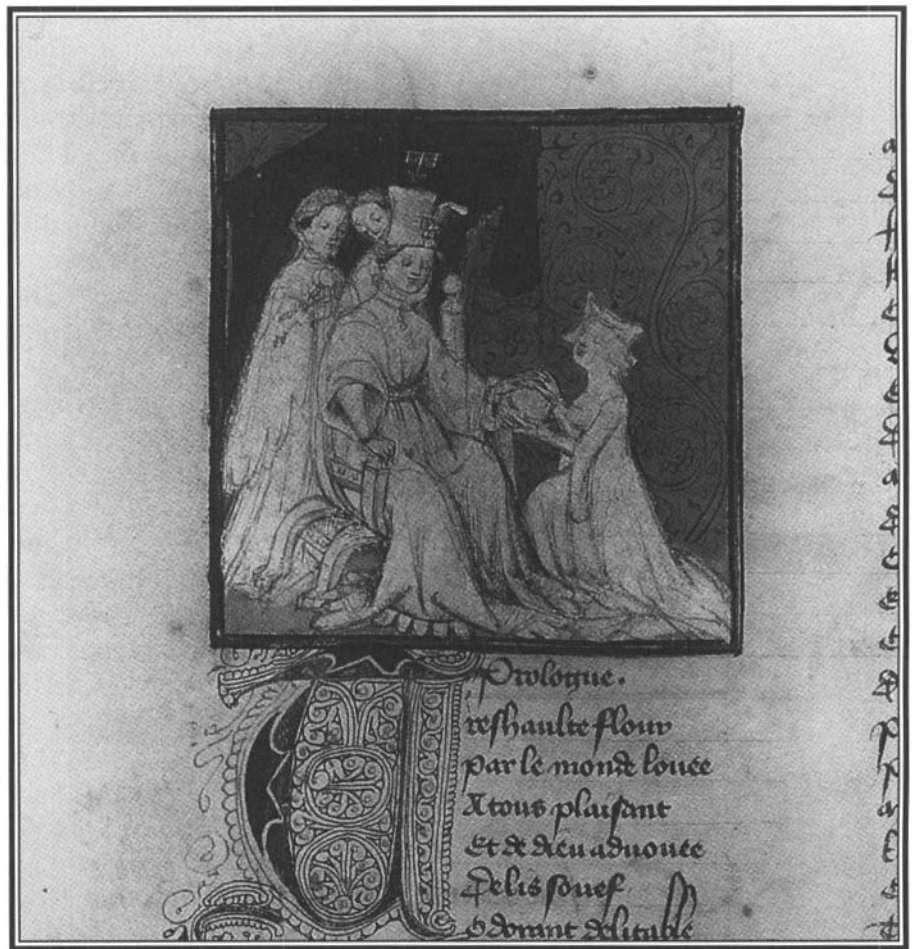 Prologue.
Treshaulte flour
Par le monde louee
A tous plaisant
Et de dieu aduouee
De lis souef
Odorant delitable